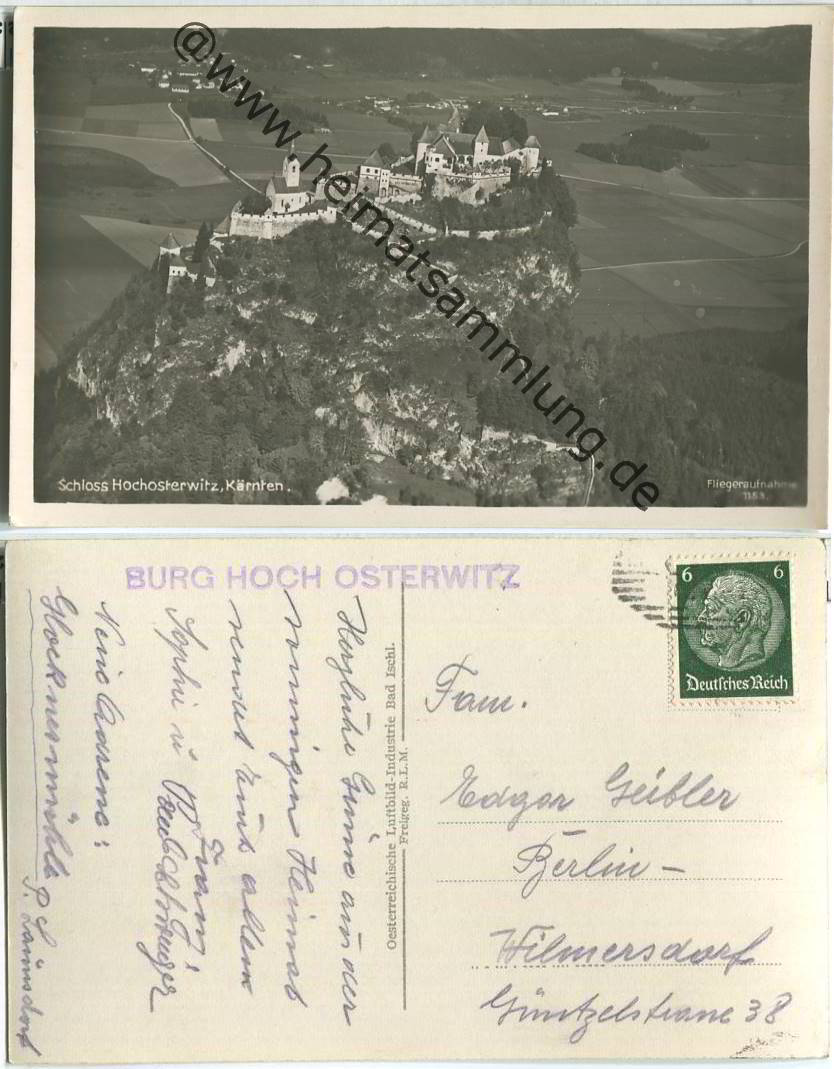 @www.heimatsammlung.de
Schloss Hochosterwitz, Kärnten.
Fliegeraufnahme
1153.
BURG HOCH OSTERWITZ
6 6
Deutsches Reich
Herzliche Grüsse aus der
sonnigen Heimat
sendet Euch allen
Sophie u
Fam.
Neue Adresse:
Glocknermühle
P. Launsdorf
Oesterreichische Luftbild-Industrie Bad Ischl.
Freigeg. R.L.M.
Fam.
Edgar Geibler
Berlin -
Wilmersdorf
Güntzelstrasse 38